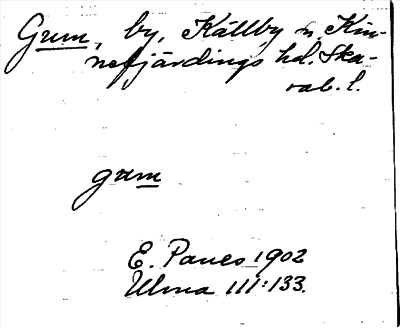 Gum, by, Källby sn, Kin-
nefjärdings hd. Ska-
rab. l.
gum
E. Panes 1902
Ulma 111:133.